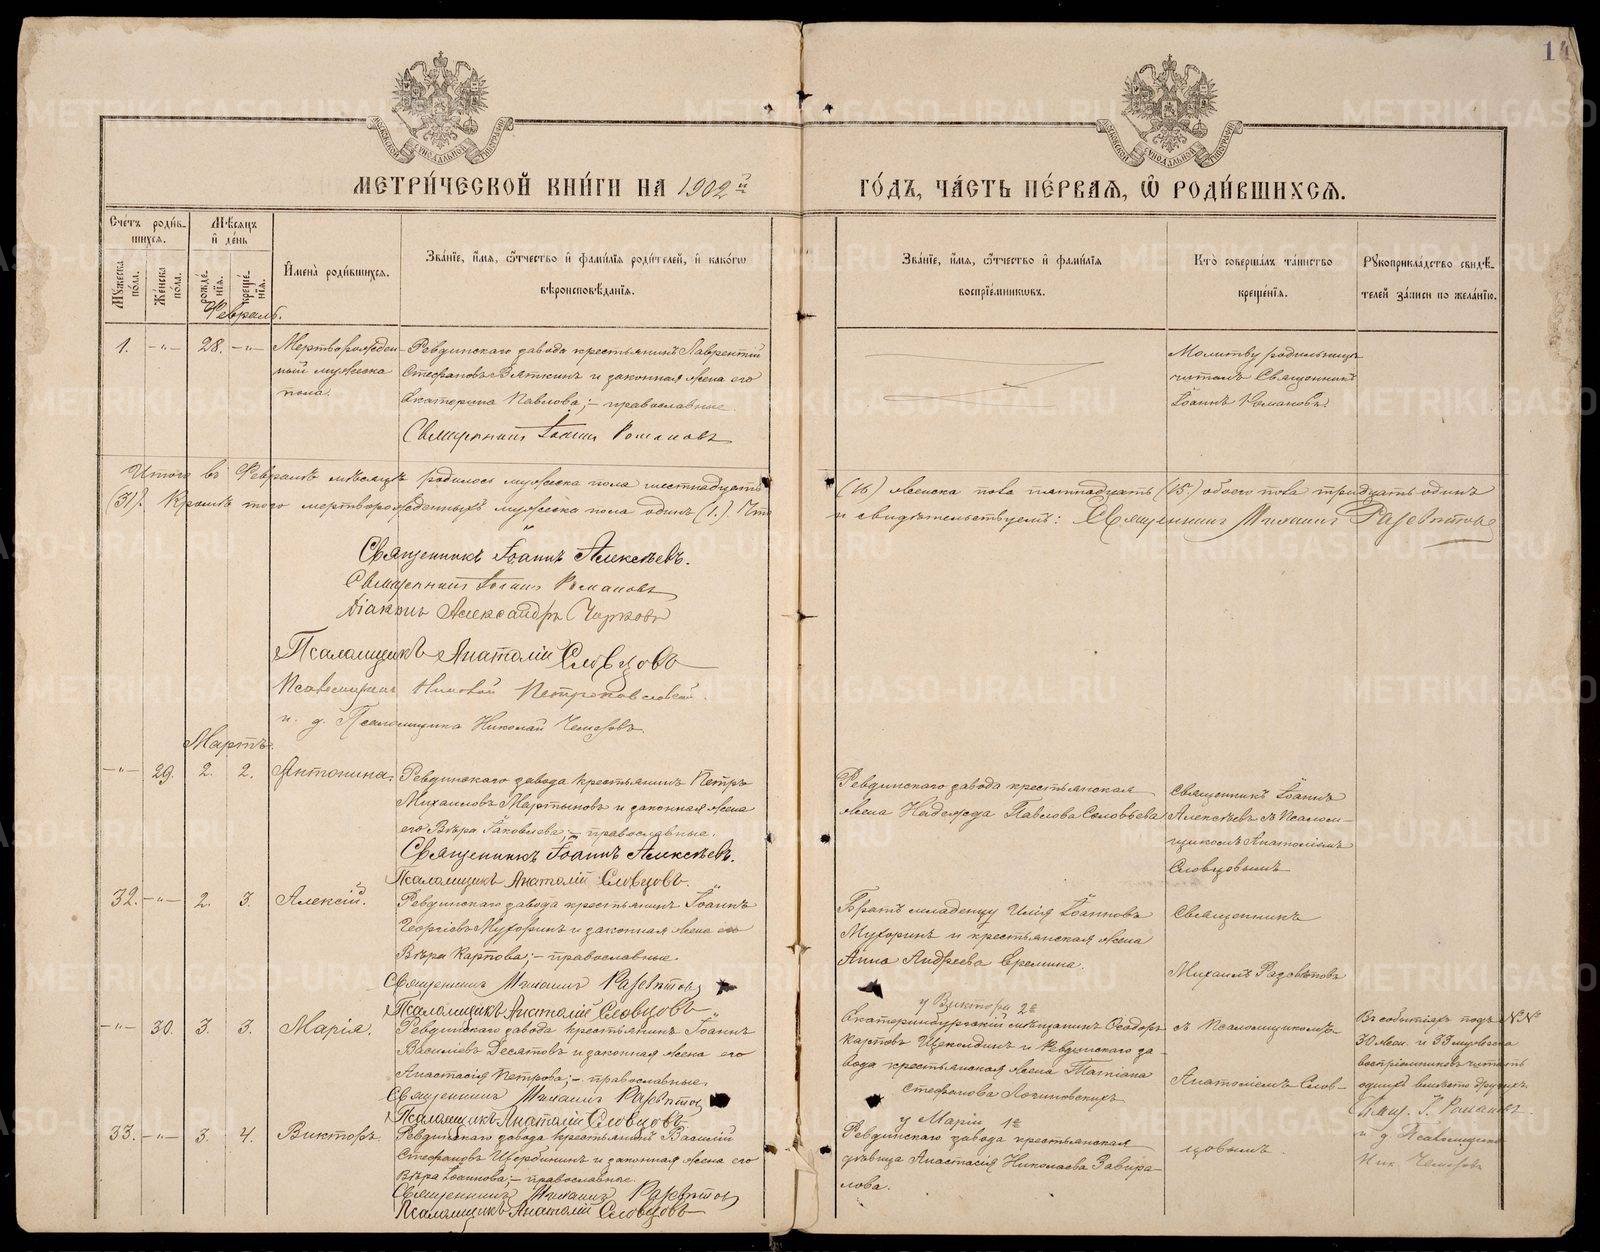 14
МЕТРИ́ЧЕСКОЙ КНИ́ГИ НА 1902й
ГО́ДЪ, ЧА́СТЬ ПЕ́РВАѦ, Ѽ РОДИ́ВШИХСѦ.
Сче́тъ роди́в-
шихсѧ.
Мѣ́сѧцъ
и҆ де́нь
Мꙋ́жеска
по́ла.
Же́нска
по́ла.
рожде́-
нїѧ.
креще́-
нїѧ.
И҆мена̀ роди́вшихсѧ.
Зва́нїе, и҆́мѧ, ѻ҆́тчество и҆ фами́лїѧ роди́телей, и҆ како́гѡ
вѣроисповѣ́данїѧ.
Зва́нїе, и҆́мѧ, ѻ҆́тчество и҆ фами́лїѧ
воспрїе́мниковъ.
Кто̀ соверша́лъ та́инство
креще́нїѧ.
Рꙋкоприкла́дство свидѣ́-
телей за́писи по жела́нїю.
Февраль.
1. -"- 28. -"-
Мертворожден-
ный мужеска
пола.
Ревдинскаго завода крестьянинъ Лаврентій
Стефановъ Вяткинъ и законная жена его
Екатерина Павлова; - православные.
Священникъ Іоаннъ Романовъ
Молитву родильницѣ
читалъ Священникъ
Іоаннъ Романовъ.
Итого въ Февралѣ мѣсяцѣ родилось мужеска пола шестнадцать
(16) женска пола пятнадцать (15.) обоего пола тридцать одинъ
(31). Кромѣ того мертворожденныхъ мужеска пола одинъ (1.). Что
и свидѣтельствуемъ: Священникъ Михаилъ
Священникъ Іоаннъ Алексѣевъ.
Священникъ Іоаннъ Романовъ
Діаконъ Александръ
Псаломщикъ Анатолій Словцовъ
Псаломщикъ Николай Петропавловскій.
и. д. Псаломщика Николай
Мартъ.
-"- 29. 2. 2.
Антонина.
Ревдинскаго завода крестьянинъ Петръ
Михаиловъ Мартыновъ и законная жена
его Вѣра Іаковлева; - православные.
Священникъ Іоаннъ Алексѣевъ.
Псаломщикъ Анатолій Словцовъ.
Ревдинскаго завода крестьянская
жена Надежда Павлова Соловьева
Священникъ Іоаннъ
Алексѣевъ съ Псалом-
щикомъ Анатоліемъ
Словцовымъ
32. -"- 2. 3.
Алексій.
Ревдинскаго завода крестьянинъ Іоаннъ
Георгіевъ Мухоринъ и законная жена его
Вѣра Карпова; - православные.
Священникъ Михаилъ
Псаломщикъ Анатолій Словцовъ
Братъ младенцу Илія Іоанновъ
Мухоринъ и крестьянская жена
Анна Андреева Еремина.
Священникъ
Михаилъ
-"- 30. 3. 3.
Марія.
Ревдинскаго завода крестьянинъ Іоаннъ
Василіевъ Десятовъ и законная жена его
Анастасія Петрова; - православные.
Священникъ Михаилъ
Псаломщикъ Анатолій Словцовъ
у Виктора 2е
Екатеринбургскій мѣщанинъ Ѳеодоръ
Карповъ Щеколдинъ и Ревдинскаго за-
вода крестьянская жена Татіана
Стефанова Логиновскихъ
съ Псаломщикомъ
Анатоліемъ Слов-
цовымъ.
Въ событіяхъ подъ №№
30 жен. и 33 мужеска
воспріемниковъ читать
однихъ вмѣсто другихъ.
Свящ. І. Романовъ
и д Псаломщика
Ник.
33. -"- 3. 4.
Викторъ.
Ревдинскаго завода крестьянинъ Василій
Стефановъ Щербининъ и законная жена его
Вѣра Іоаннова; - православные.
Священникъ Михаилъ
Псаломщикъ Анатолій Словцовъ
у Маріи 1е
Ревдинскаго завода крестьянская
дѣвица Анастасія Николаева Завира-
лова.
METRIKI.GASO-URAL.RU